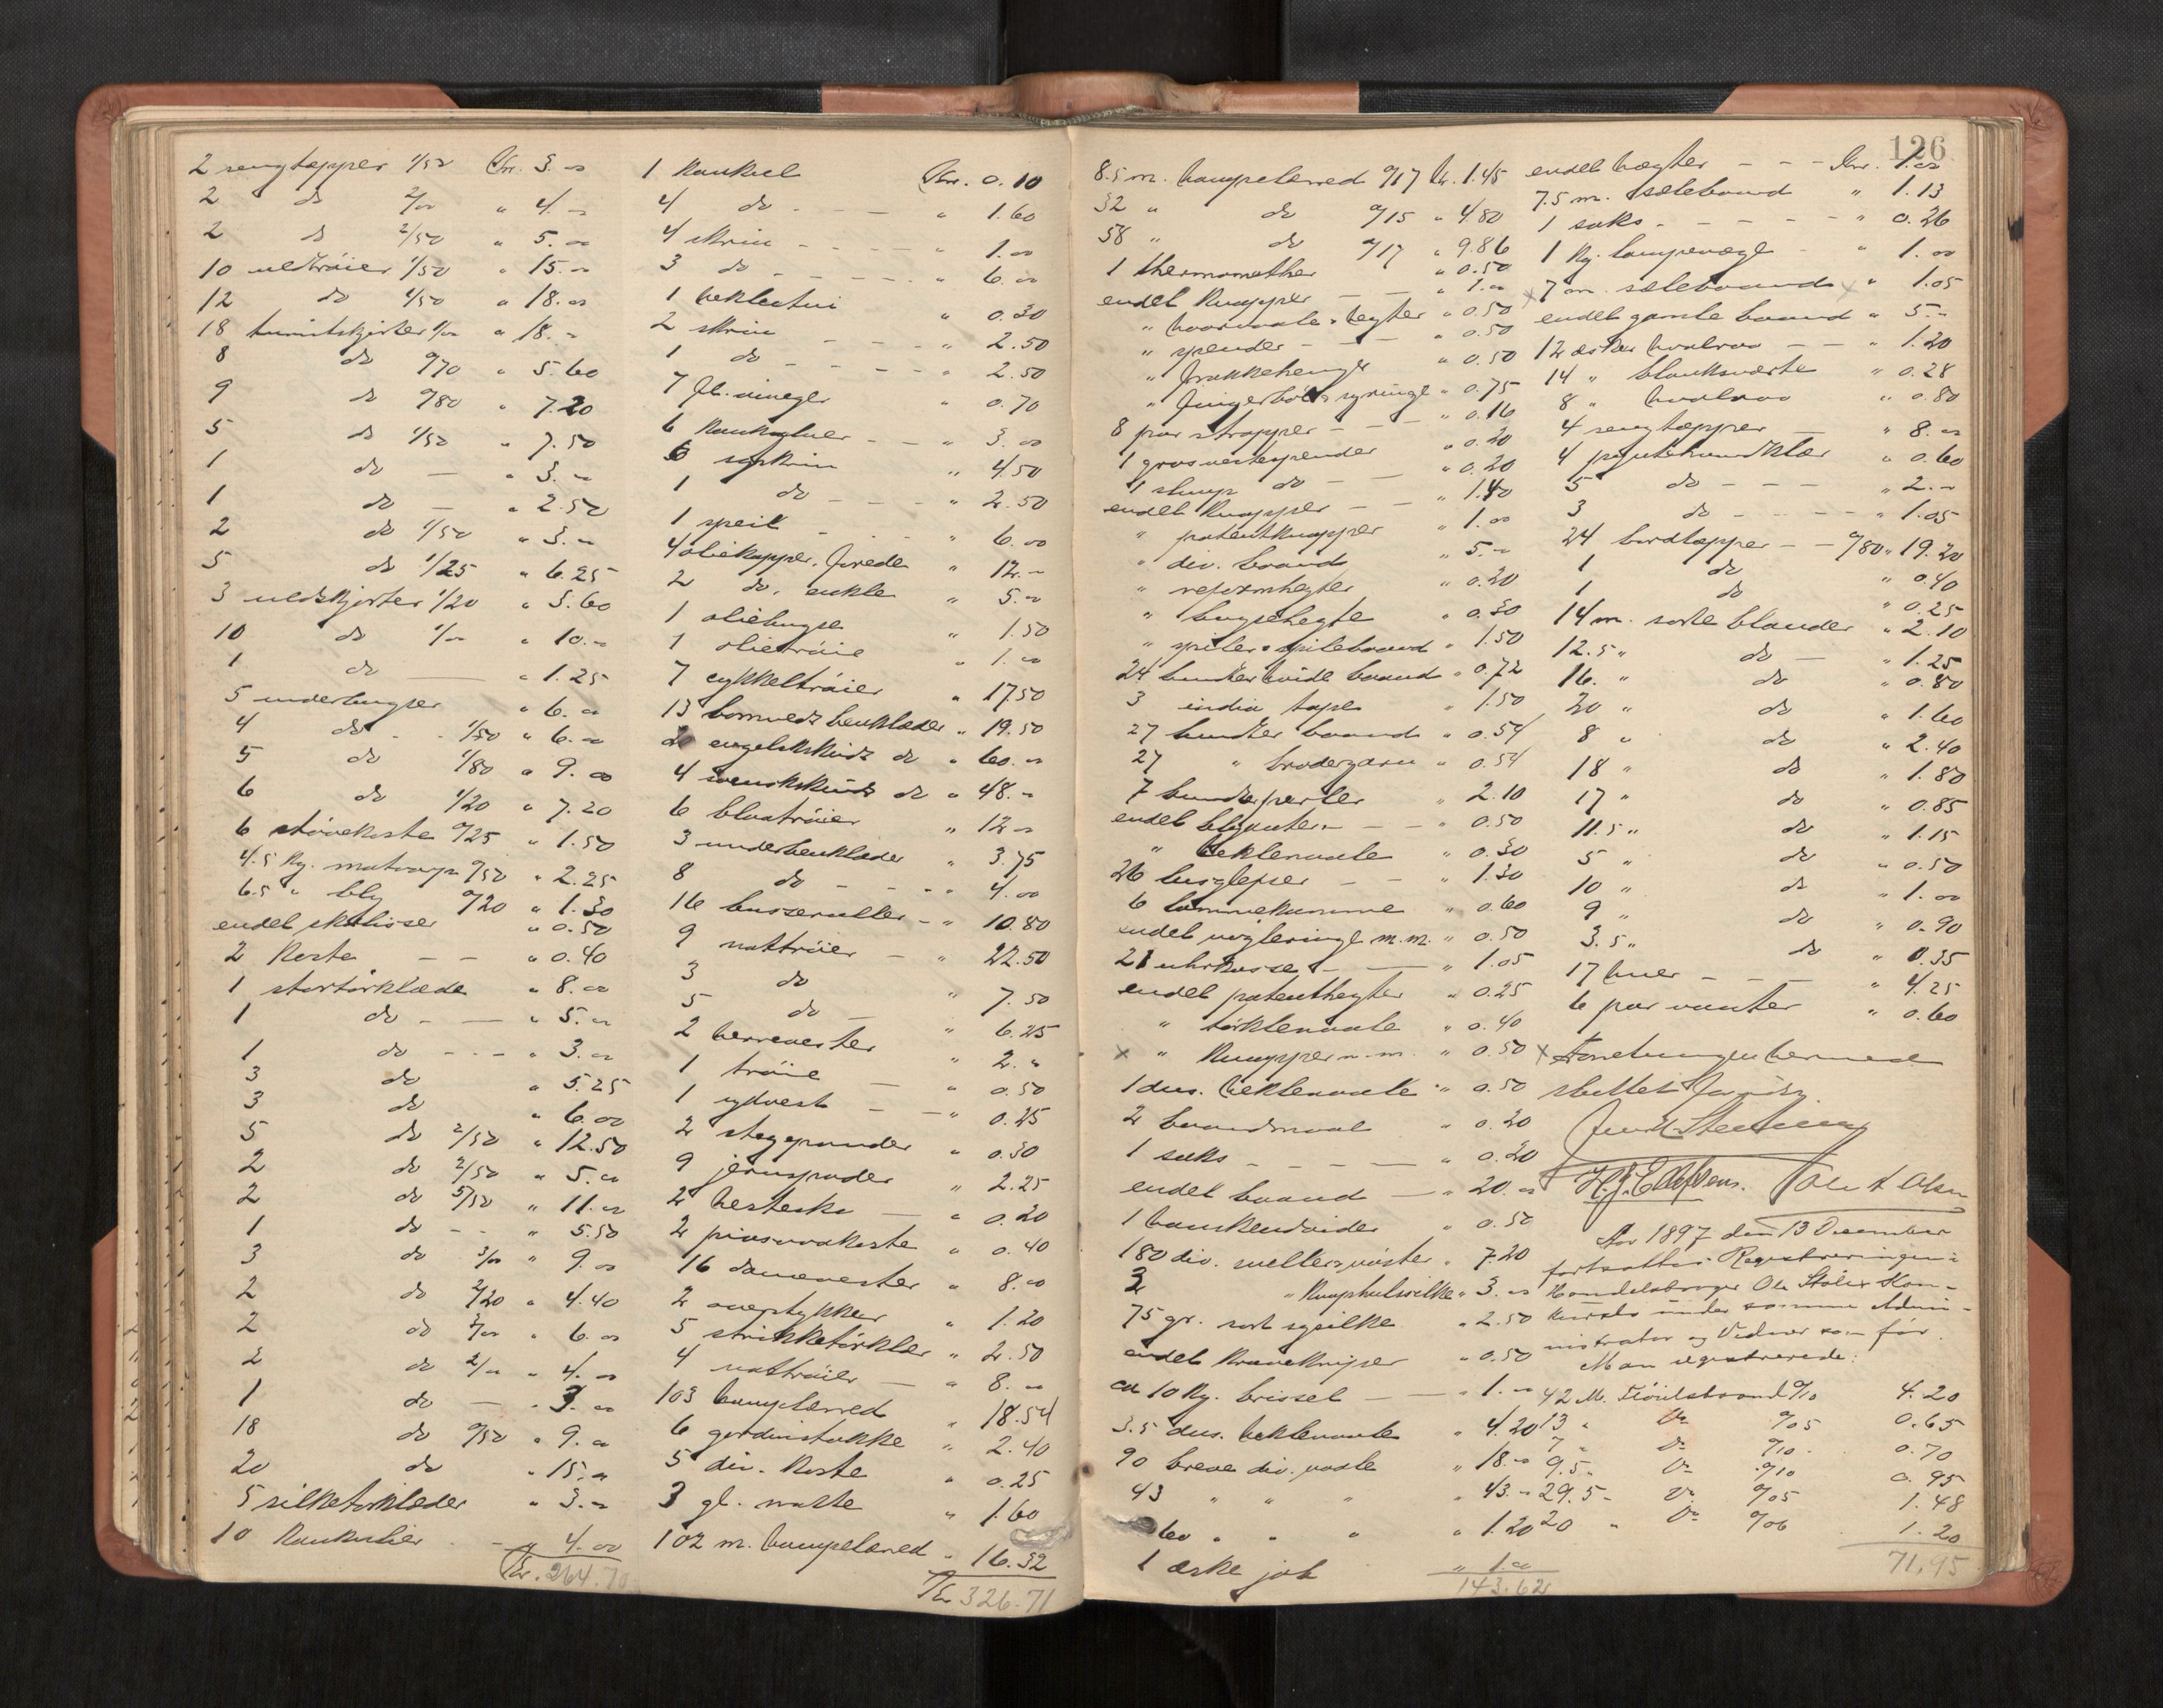 2 sengtæpper 1/50 Kr. 3.00
2 do 2/00 " 4.00
2 do 2/50 " 5.00
10 uldtrøier 1/50 " 15.00
12 do 1/50 " 18.00
18 1/00 " 18.00
8 do 0/70 " 5.60
9 do 0/80 " 7.20
5 do 1/50 " 7.50
1 do — " 3.00
1 do — " 2.50
2 do 1/50 " 3.00
5 do 1/25 " 6.25
3 uldskjorter 1/20 " 3.60
10 do 1/00 " 10.00
1 do — " 1.25
5 underbugser " 6.00
4 do - - 1/50 " 6.00
5 do 1/80 " 9.00
6 do 1/20 " 7.20
6 støvekoste 0/25 " 1.50
4.5 Kg. 0/50 " 2.25
6.5 " bly 0/20 " 1.30
endel skolisser " 0.50
2 Koste — — " 0.40
1 stortørklæde " 8.00
1 do - — " 5.00
1 do - - - " 3.00
3 do " 5.25
3 do " 6.00
5 do 2/50 " 12.50
2 do 2/50 " 5.00
2 do 5/50 " 11.00
1 do - - " 5.50
3 do 3/00 " 9.00
2 do 2/20 " 4.40
2 do 3/00 " 6.00
2 do 2/00 " 4.00
1 do — " 3.00
18 do 0/50 " 9.00
20 do " 15.00
5 silketørklæder " 3.00
10 - " 4.00
Kr. 264.70
1 Kr. 0.10
4 do - — " 1.60
4 skrin - - - - " 1.00
3 do - - - - " 6.00
1 " 0.30
2 skrin - - - " 2.50
1 do - - - - " 2.50
7 fl. vineger " 0.70
6 - - " 3.00
6 syskrin " 4.50
1 do - - - " 2.50
1 speil - - " 6.00
4 oliekapper, forede " 12.00
2 do, enkle " 5.00
1 oliebugse " 1.50
1 olietrøie " 1.00
7 cykkeltrøier " 17.50
13 bomulds benklæder " 19.50
20 engelskskinds do " 60.00
4 do " 48.00
6 blaatrøier " 12.00
3 underbenklæder " 3.75
8 do - - - - " 4.00
16 busseruller - - " 10.80
9 nattrøier — " 22.50
3 do " 7.50
5 do — " 6.25
2 herrevester " 2.00
1 trøie — " 0.50
1 sydvest - — " 0.25
2 stegepander " 0.30
9 jernspader " 2.25
2 hestesko — " 0.20
2 piasavakoste " 0.40
16 damevester " 8.00
2 overstykker " 1.20
5 strikketørklær " 2.50
4 nattrøier — " 8.00
103 hampelærred " 18.54
6 gardinstokke " 2.40
5 div. Koste " 0.25
3 gl. " 1.60
102 m. hampelærred " 16.32
Kr 326.71
126
8.5 m. hampelærred 0/17 kr. 1.45
32 " do 0/15 " 4.80
58 " do 0/17 " 9.86
1 thermomether " 0.50
endel Knapper — — " 1.00
" haarnaale & hegter " 0.50
" spender - - - " 0.50
" frakkehenger " 0.50
" fingerbøl & syringe " 0.75
8 par stropper - - - " 0.16
1 gros vestespender " 0.20
1 slump do - — " 0.20
endel Knapper — — " 1.40
" patentknapper " 1.00
" div. baand " 5.00
" reformhegter " 0.20
" bugsehegte " 0.30
" spiler & spilebaand " 1.50
24 bundter hvide baand " 0.72
3 india tape " 1.50
27 bundter baand " 0.54
27 " brodergarn " 0.54
7 bundt perler " 2.10
endel blyanter - — - " 0.50
" heklenaale " 0.30
26 - — " 1.30
6 lommekamme " 0.60
endel nøgleringe m.m. " 0.50
21 - — " 1.05
endel patenthegter " 0.25
" " 0.40
× " Knapper m.m. " 0.50 ×
1 dus. heklenaale " 0.50
2 baandmaal " 0.20
1 saks - - - — " 0.20
endel baand — " 20.00
1 " 0.50
180 div. " 7.20
3 " Knaphulsilke " 3.00
75 gr. sort sysilke " 2.50
endel Kraveknipper " 0.50
ca 10 Kg. brissel — " 1.00
3.5 dus. heklenaale " 4.20
90 breve div. naale " 18.00
43 " " " " 43.00
60 " " " " 1.20
1 æske job " 1.00
143.62
endel hægter - - - Kr. 1.00
7.5 m. selebaand " 1.13
1 saks - - - - - " 0.26
1 Kg. lampevæge - " 1.00
× 7 m. selebaand × " 1.05
endel gamle baand " 5.00
12 æsker — — " 1.20
14 " blanksværte " 0.28
8 " " 0.80
4 sengtæpper — " 8.00
4 " 0.60
5 do - - - " 2.00
3 do - - - - " 1.05
24 bordtæpper — — 0/80 " 19.20
1 do " 0.40
1 do " 0.25
14 m. sorte blonder " 2.10
12.5 " do — " 1.25
16. " do " 0.80
20 " do " 1.60
8 " do " 2.40
18 " do " 1.80
17 " do " 0.85
11.5 " do " 1.15
5 " do " 0.50
10 " do " 1.00
9 " do " 0.90
3.5 " do " 0.35
17 huer - - — " 4.25
6 par vanter " 0.60
Forretningen hermed
sluttet
Ole A Olsen
Aar 1897 den 13 December
fortsattes Registreringen i
Handelsborger Ole Kon-
kursbo under samme Admi-
nistrator og Vidner som før.
Man registrerede:
42 M. Fløielsbaand 0/10 4.20
13 " Do 0/05 0.65
7 " Do 0/10 0.70
9.5 " Do 0/10 0.95
29.5 - Do 0/05 1.48
20 " Do 0/06 1.20
71,95